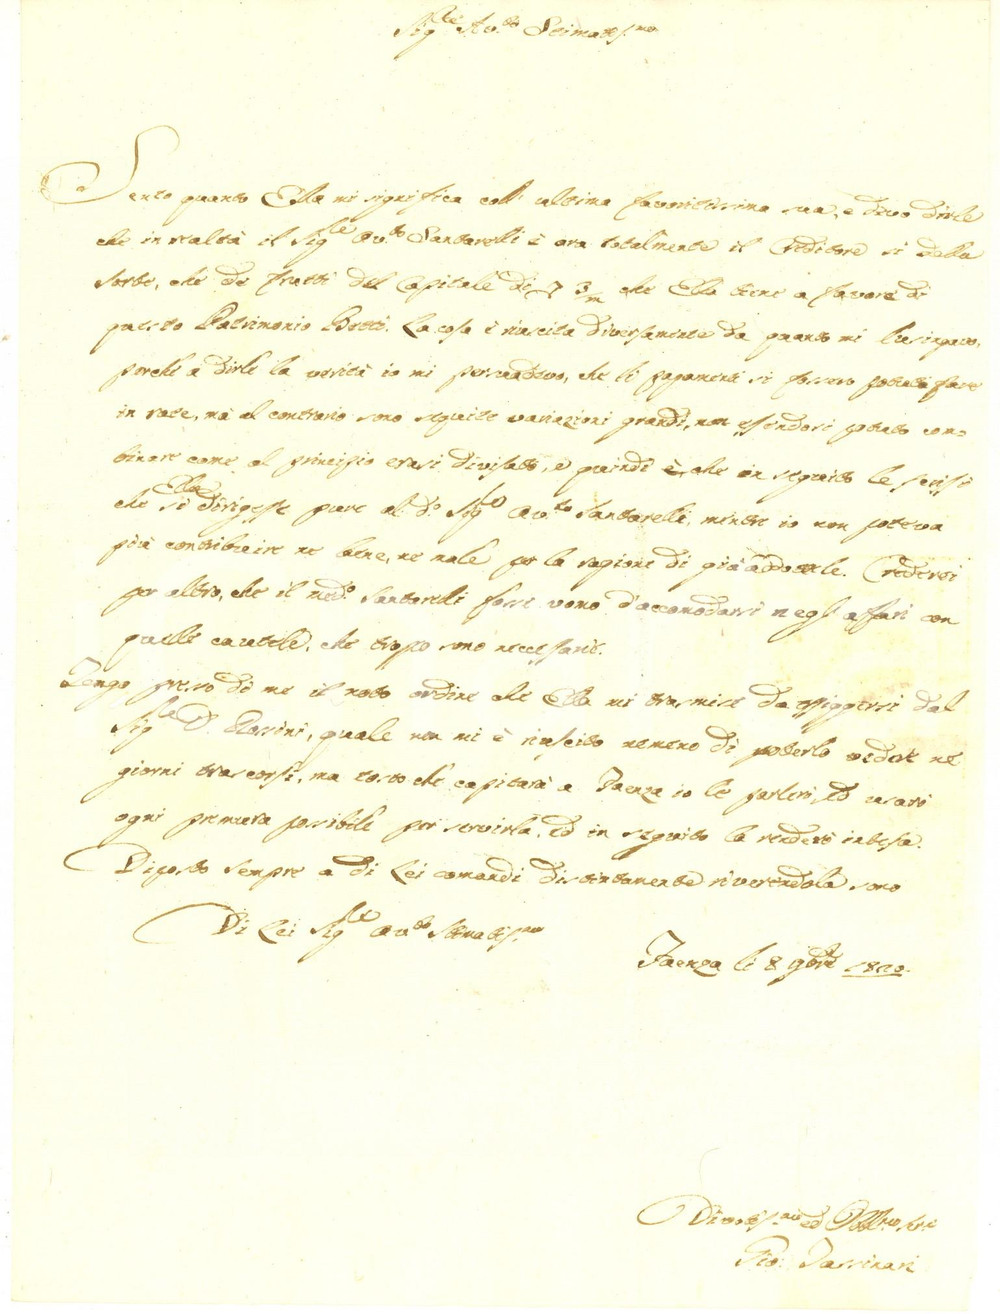 Sig.re Av.to Stimatis.mo
Sento quanto Ella mi significa coll' ultima favoritissima sua, e devo dirle
che in realtà il Sig.re Av.to Santarelli è ora totalmente il Creditore sì della
sorte, che de' frutti del Capitale di 3/m che Ella tiene a favore di
questo Patrimonio Betti. La cosa è riuscita diversamente da quanto mi lusingavo,
perchè a dirle la verità io mi persuadevo, che li pagamenti si fossero potuti fare
in rate, ma al contrario sono seguite variazioni grandi, non essendosi potuto com=
binare come al principio erasi divisato, e quindi è, che in seguito le scrissi
che Ella si dirigesse pure al d.o Sig.re Av.to Santarelli, mentre io non poteva
più contribuire nè bene, nè male per la ragione di già addottale. Crederei
per altro, che il med.o Santarelli fosse uomo d'accomodarsi negl'affari con
quelle cautele, che troppo sono necessarie.
Tengo presso di me il noto ordine che Ella mi trasmise da esiggersi dal
Sig.re D. quale non mi è riuscito nemeno di poterlo vedere nè
giorni trascorsi, ma tosto che capiterà a Faenza io le parlerò, ed userò
ogni premura possibile per servirla, ed in seguito la renderò intesa.
Disposto sempre a di Lei comandi distintamente riverendola sono
Di Lei Sig.re Av.to Stimatis.mo
Faenza li 8 9bre 1820.
Divotis.mo ed Obb.mo Ser.e
Gio: Tassinari